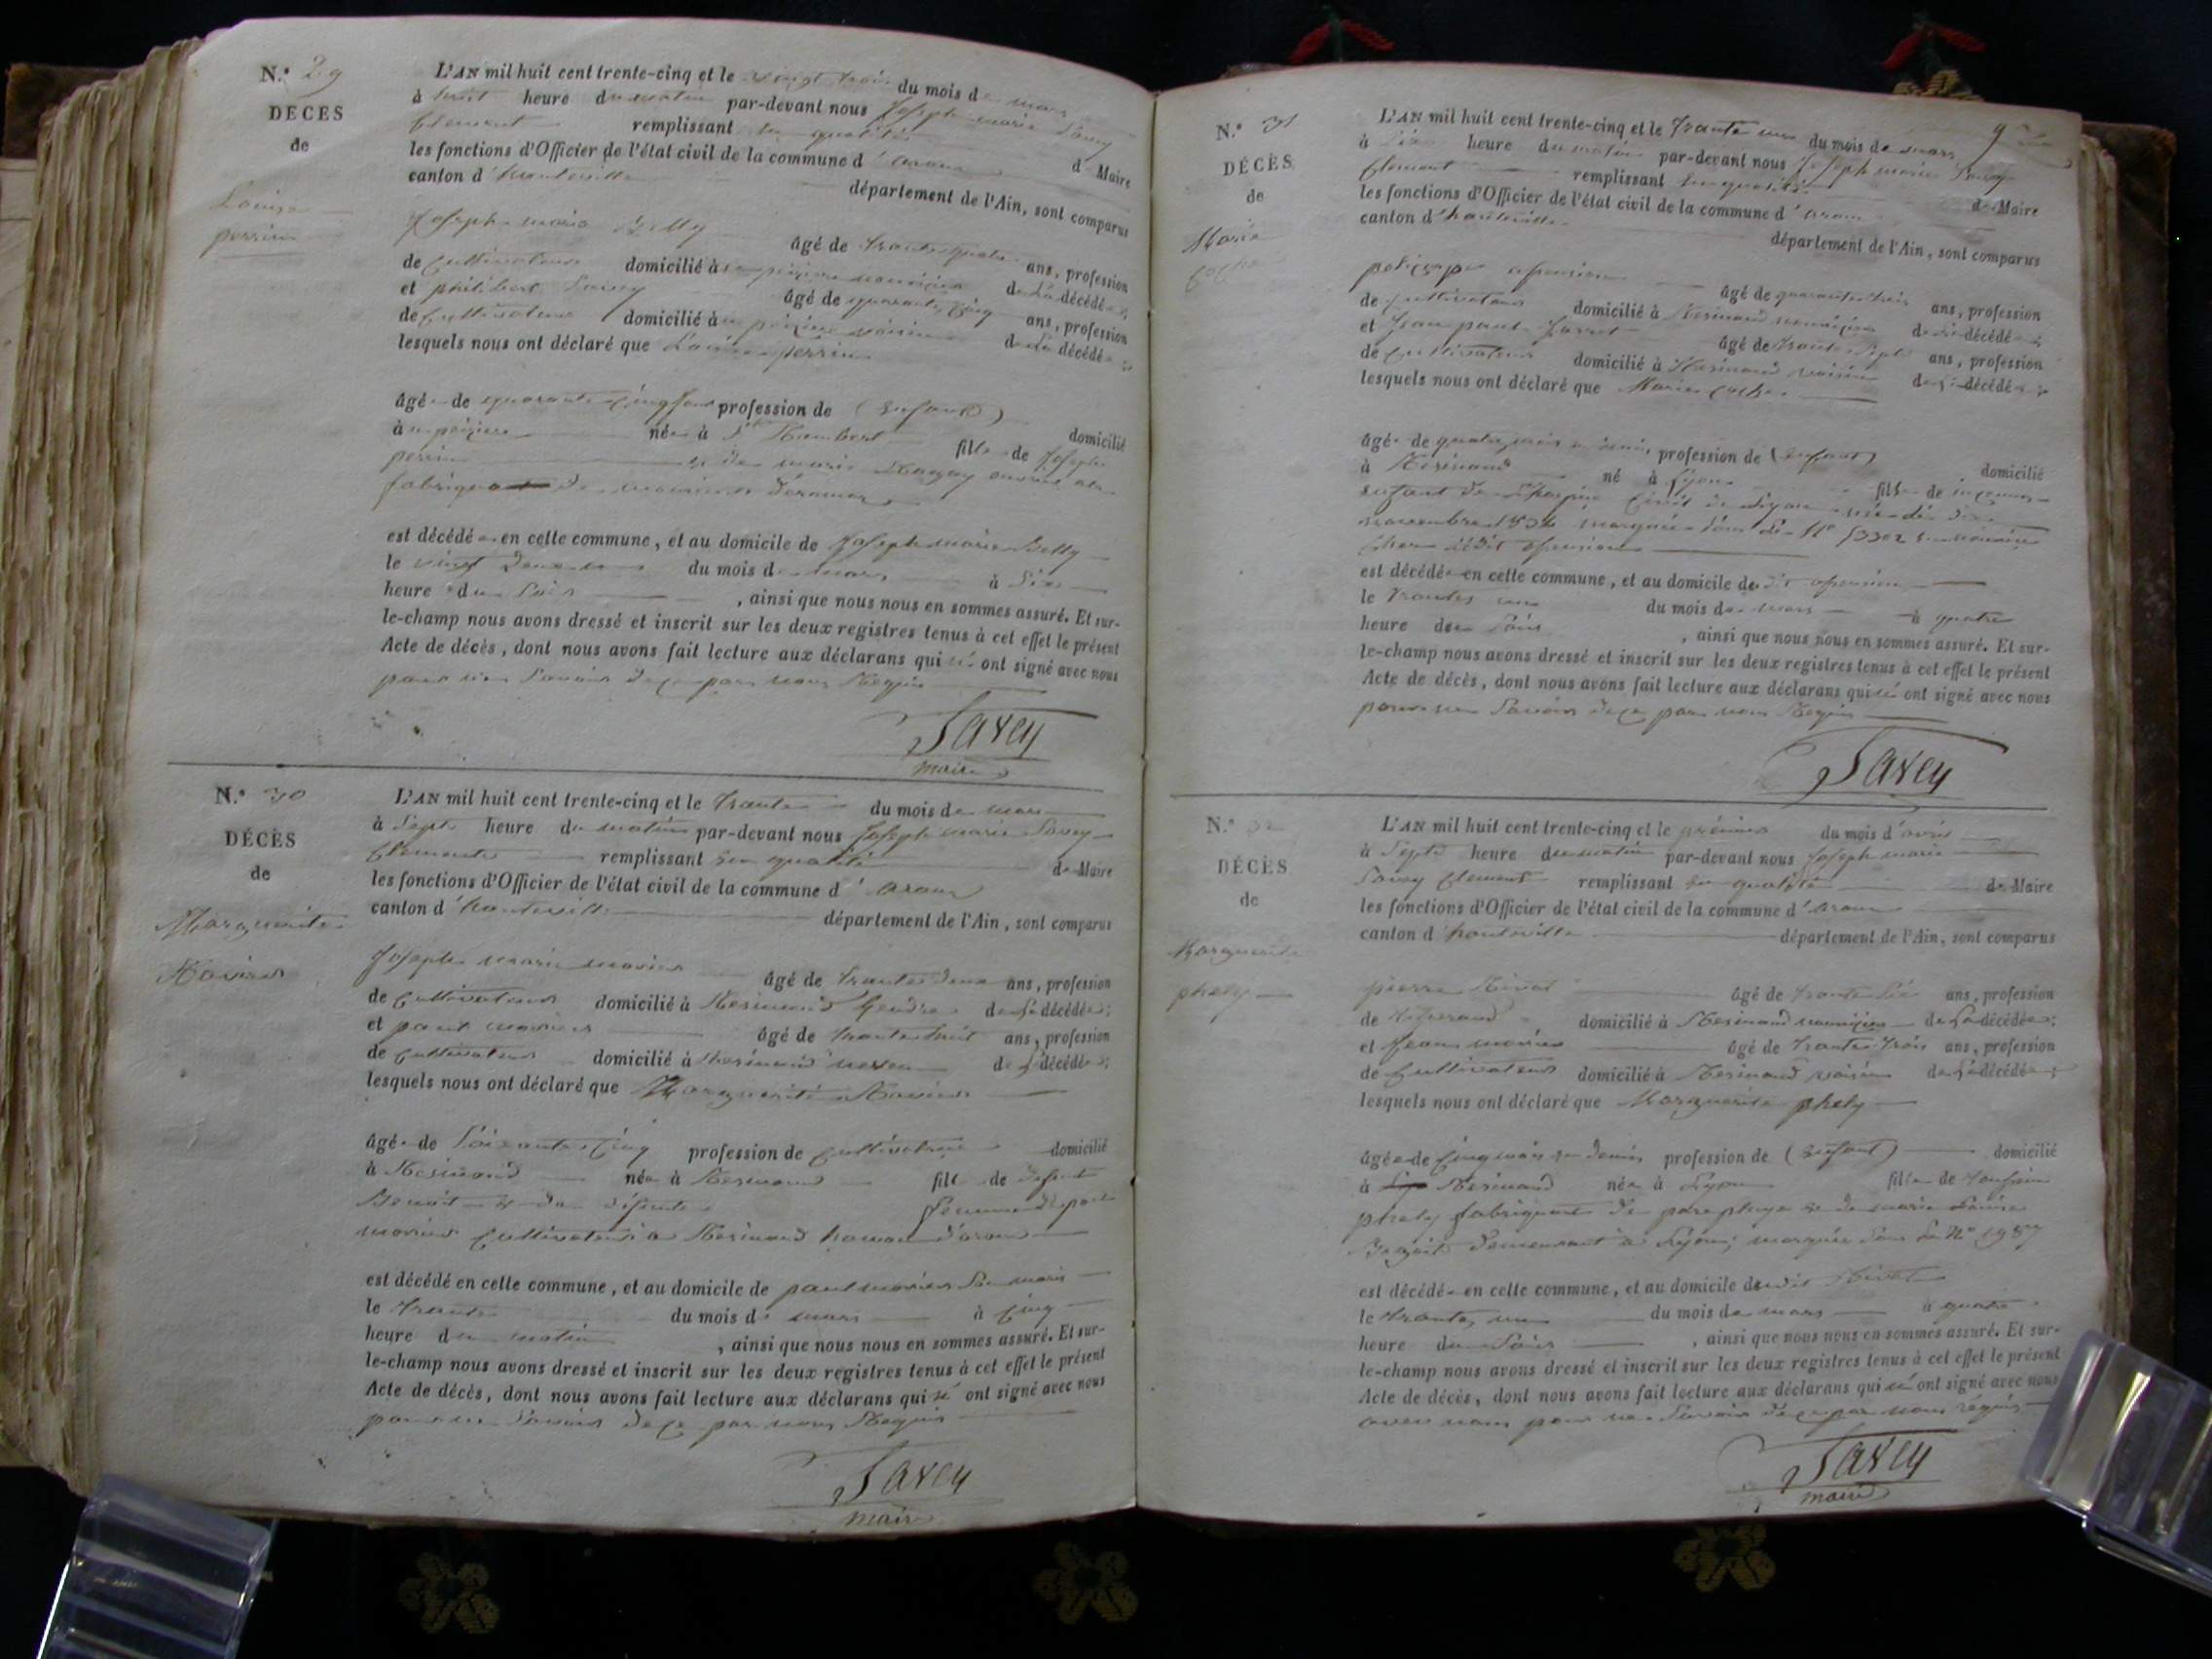 N.° 29
DÉCÈS
de
Louise
perrin
L'AN mil huit cent trente-cinq et le vingt trois du mois de mars
à huit heure du matin par-devant nous Joseph marie Savey
Clement remplissant en qualité de Maire
les fonctions d'Officier de l'état civil de la commune d'aranc
canton d'hauteville département de l'Ain, sont comparus
Joseph marie Billy âgé de trante quatre ans, profession
de Cultivateur domicilié à nourricier de La décédée,
et philibert Savey âgé de quarante cinq ans, profession
de Cultivateur domicilié à voisin de La décédée;
lesquels nous ont déclaré que Louise perrin
âgée de quarante cinq jour profession de (Enfant) domicilié
à née à St Rambert fille de Joseph
perrin et de marie
fabrique
est décédée en cette commune, et au domicile de Joseph marie Billy
le vingt deux du mois de mars à Six
heure du Soir, ainsi que nous nous en sommes assuré. Et sur-
le-champ nous avons dressé et inscrit sur les deux registres tenus à cet effet le présent
Acte de décès, dont nous avons fait lecture aux déclarans qui n'ont signé avec nous
pour ne Savoir de ce par nous Requis
Savey
maire
N.° 30
DÉCÈS
de
Marguerite
Ravier
L'AN mil huit cent trente-cinq et le trante du mois de mars
à Sept heure du matin par-devant nous Joseph marie Savey
Clement remplissant en qualité de Maire
les fonctions d'Officier de l'état civil de la commune d'aranc
canton d'hauteville département de l'Ain, sont comparus
Joseph marie morier âgé de trante deux ans, profession
de Cultivateur domicilié à Resinand Gendre de La décédée;
et paul morier âgé de trante huit ans, profession
de Cultivateur domicilié à Resinand neveu de La décédée;
lesquels nous ont déclaré que Marguerite Ravier
âgée de Soixante Cinq profession de Cultivatrice domicilié
à Resinand née à Resinand fille de défunt
Benoit et de défunte femme de paul
morier Cultivateur à Resinand hameau d'aranc
est décédé en cette commune, et au domicile de paul morier Son mari
le trante du mois de mars à Cinq
heure du matin, ainsi que nous nous en sommes assuré. Et sur-
le-champ nous avons dressé et inscrit sur les deux registres tenus à cet effet le présent
Acte de décès, dont nous avons fait lecture aux déclarans qui n'ont signé avec nous
pour ne Savoir de ce par nous Requis
Savey
maire
N.° 31
DÉCÈS
de
Marie
L'AN mil huit cent trente-cinq et le trante un du mois de mars
à Six heure du matin par-devant nous Joseph marie Savey
Clement remplissant en qualité de Maire
les fonctions d'Officier de l'état civil de la commune d'aranc
canton d'hauteville département de l'Ain, sont comparus
âgé de quarante trois ans, profession
de Cultivateur domicilié à Resinand nourricier de La décédée;
et Jean paul âgé de trante Sept ans, profession
de Cultivateur domicilié à Resinand voisin de La décédée;
lesquels nous ont déclaré que Marie
âgée de quatre mois et demi, profession de (enfant) domicilié
à Resinand né à Lyon fille de inconnus
enfant de Lhospice Civil de Lyon née le dix
novembre 1834 marquée Sous Le N° nourrice
Chez Ledit
est décédée en cette commune, et au domicile de dit
le trante un du mois de mars à quatre
heure du Soir, ainsi que nous nous en sommes assuré. Et sur-
le-champ nous avons dressé et inscrit sur les deux registres tenus à cet effet le présent
Acte de décès, dont nous avons fait lecture aux déclarans qui n'ont signé avec nous
pour ne Savoir de ce par nous Requis
Savey
N.° 32
DÉCÈS
de
Marguerite
phely
L'AN mil huit cent trente-cinq et le prémier du mois d'avril
à Sept heure du matin par-devant nous Joseph marie
Savey Clement remplissant en qualité de Maire
les fonctions d'Officier de l'état civil de la commune d'aranc
canton d'hauteville département de l'Ain, sont comparus
pierre Rivat âgé de trante Six ans, profession
de domicilié à Resinand nourricier de La décédée;
et Jean morier âgé de trante trois ans, profession
de Cultivateur domicilié à Resinand voisin de La décédée;
lesquels nous ont déclaré que Marguerite phely
âgée de Cinq mois et demi profession de (Enfant) domicilié
à Resinand née à Lyon fille de
phely fabriquant de parapluye et de marie Louise
demeurant à Lyon; marquée Sous Le N° 1957
est décédée en cette commune, et au domicile dudit Rivat
le trante un du mois de mars à quatre
heure du Soir, ainsi que nous nous en sommes assuré. Et sur-
le-champ nous avons dressé et inscrit sur les deux registres tenus à cet effet le présent
Acte de décès, dont nous avons fait lecture aux déclarans qui n'ont signé avec nous
avec nous pour ne Savoir de ce par nous réquis
Savey
maire